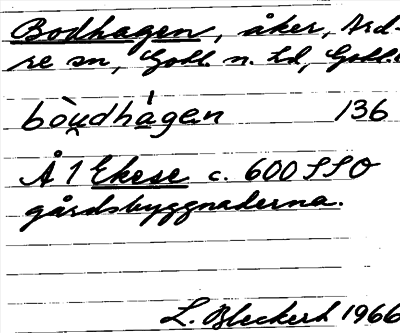 Bodhagen, åker, Ard-
re sn, Gotl. n. hd, Gotl.
bòu̯dhàgen 136
Å 1 Ekese c. 600 SSO
gårdsbyggnaderna.
L. Bleckert 1966